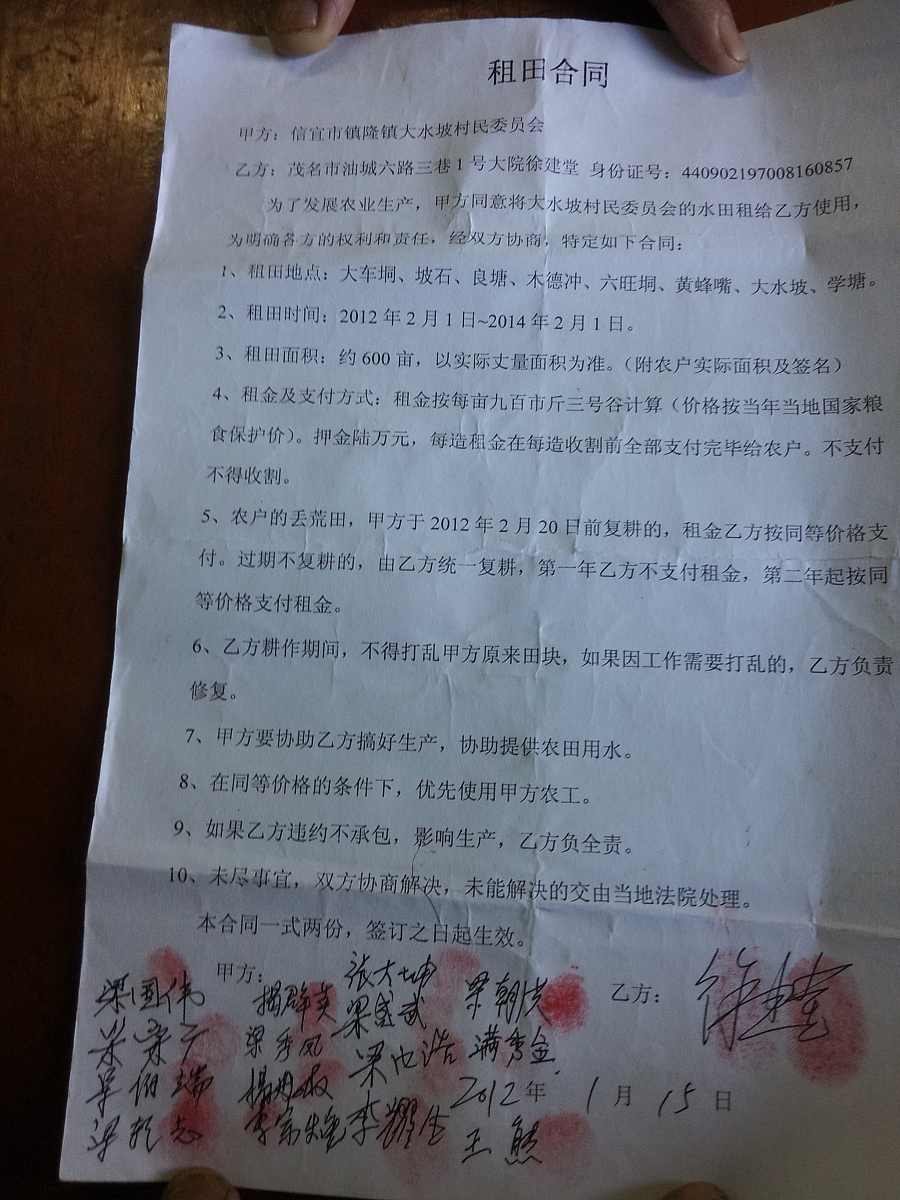 租田合同
甲方：信宜市镇隆镇大水坡村民委员会
乙方：茂名市油城六路三巷1号大院徐建堂 身份证号：440902197008160857
为了发展农业生产，甲方同意将大水坡村民委员会的水田租给乙方使用，
为明确各方的权利和责任，经双方协商，特定如下合同：
1、租田地点：大车垌、坡石、良塘、木德冲、六旺垌、黄蜂嘴、大水坡、学塘。
2、租田时间：2012年2月1日~2014年2月1日。
3、租田面积：约600亩，以实际丈量面积为准。（附农户实际面积及签名）
4、租金及支付方式：租金按每亩九百市斤三号谷计算（价格按当年当地国家粮
食保护价）。押金陆万元，每造租金在每造收割前全部支付完毕给农户。不支付
不得收割。
5、农户的丢荒田，甲方于2012年2月20日前复耕的，租金乙方按同等价格支
付。过期不复耕的，由乙方统一复耕，第一年乙方不支付租金，第二年起按同
等价格支付租金。
6、乙方耕作期间，不得打乱甲方原来田块，如果因工作需要打乱的，乙方负责
修复。
7、甲方要协助乙方搞好生产，协助提供农田用水。
8、在同等价格的条件下，优先使用甲方农工。
9、如果乙方违约不承包，影响生产，乙方负全责。
10、未尽事宜，双方协商解决，未能解决的交由当地法院处理。
本合同一式两份，签订之日起生效。
甲方： 张大坤
梁国伟 梁朝 乙方：徐建堂
梁秀凤 满秀金
2012年1月15日
李耀生